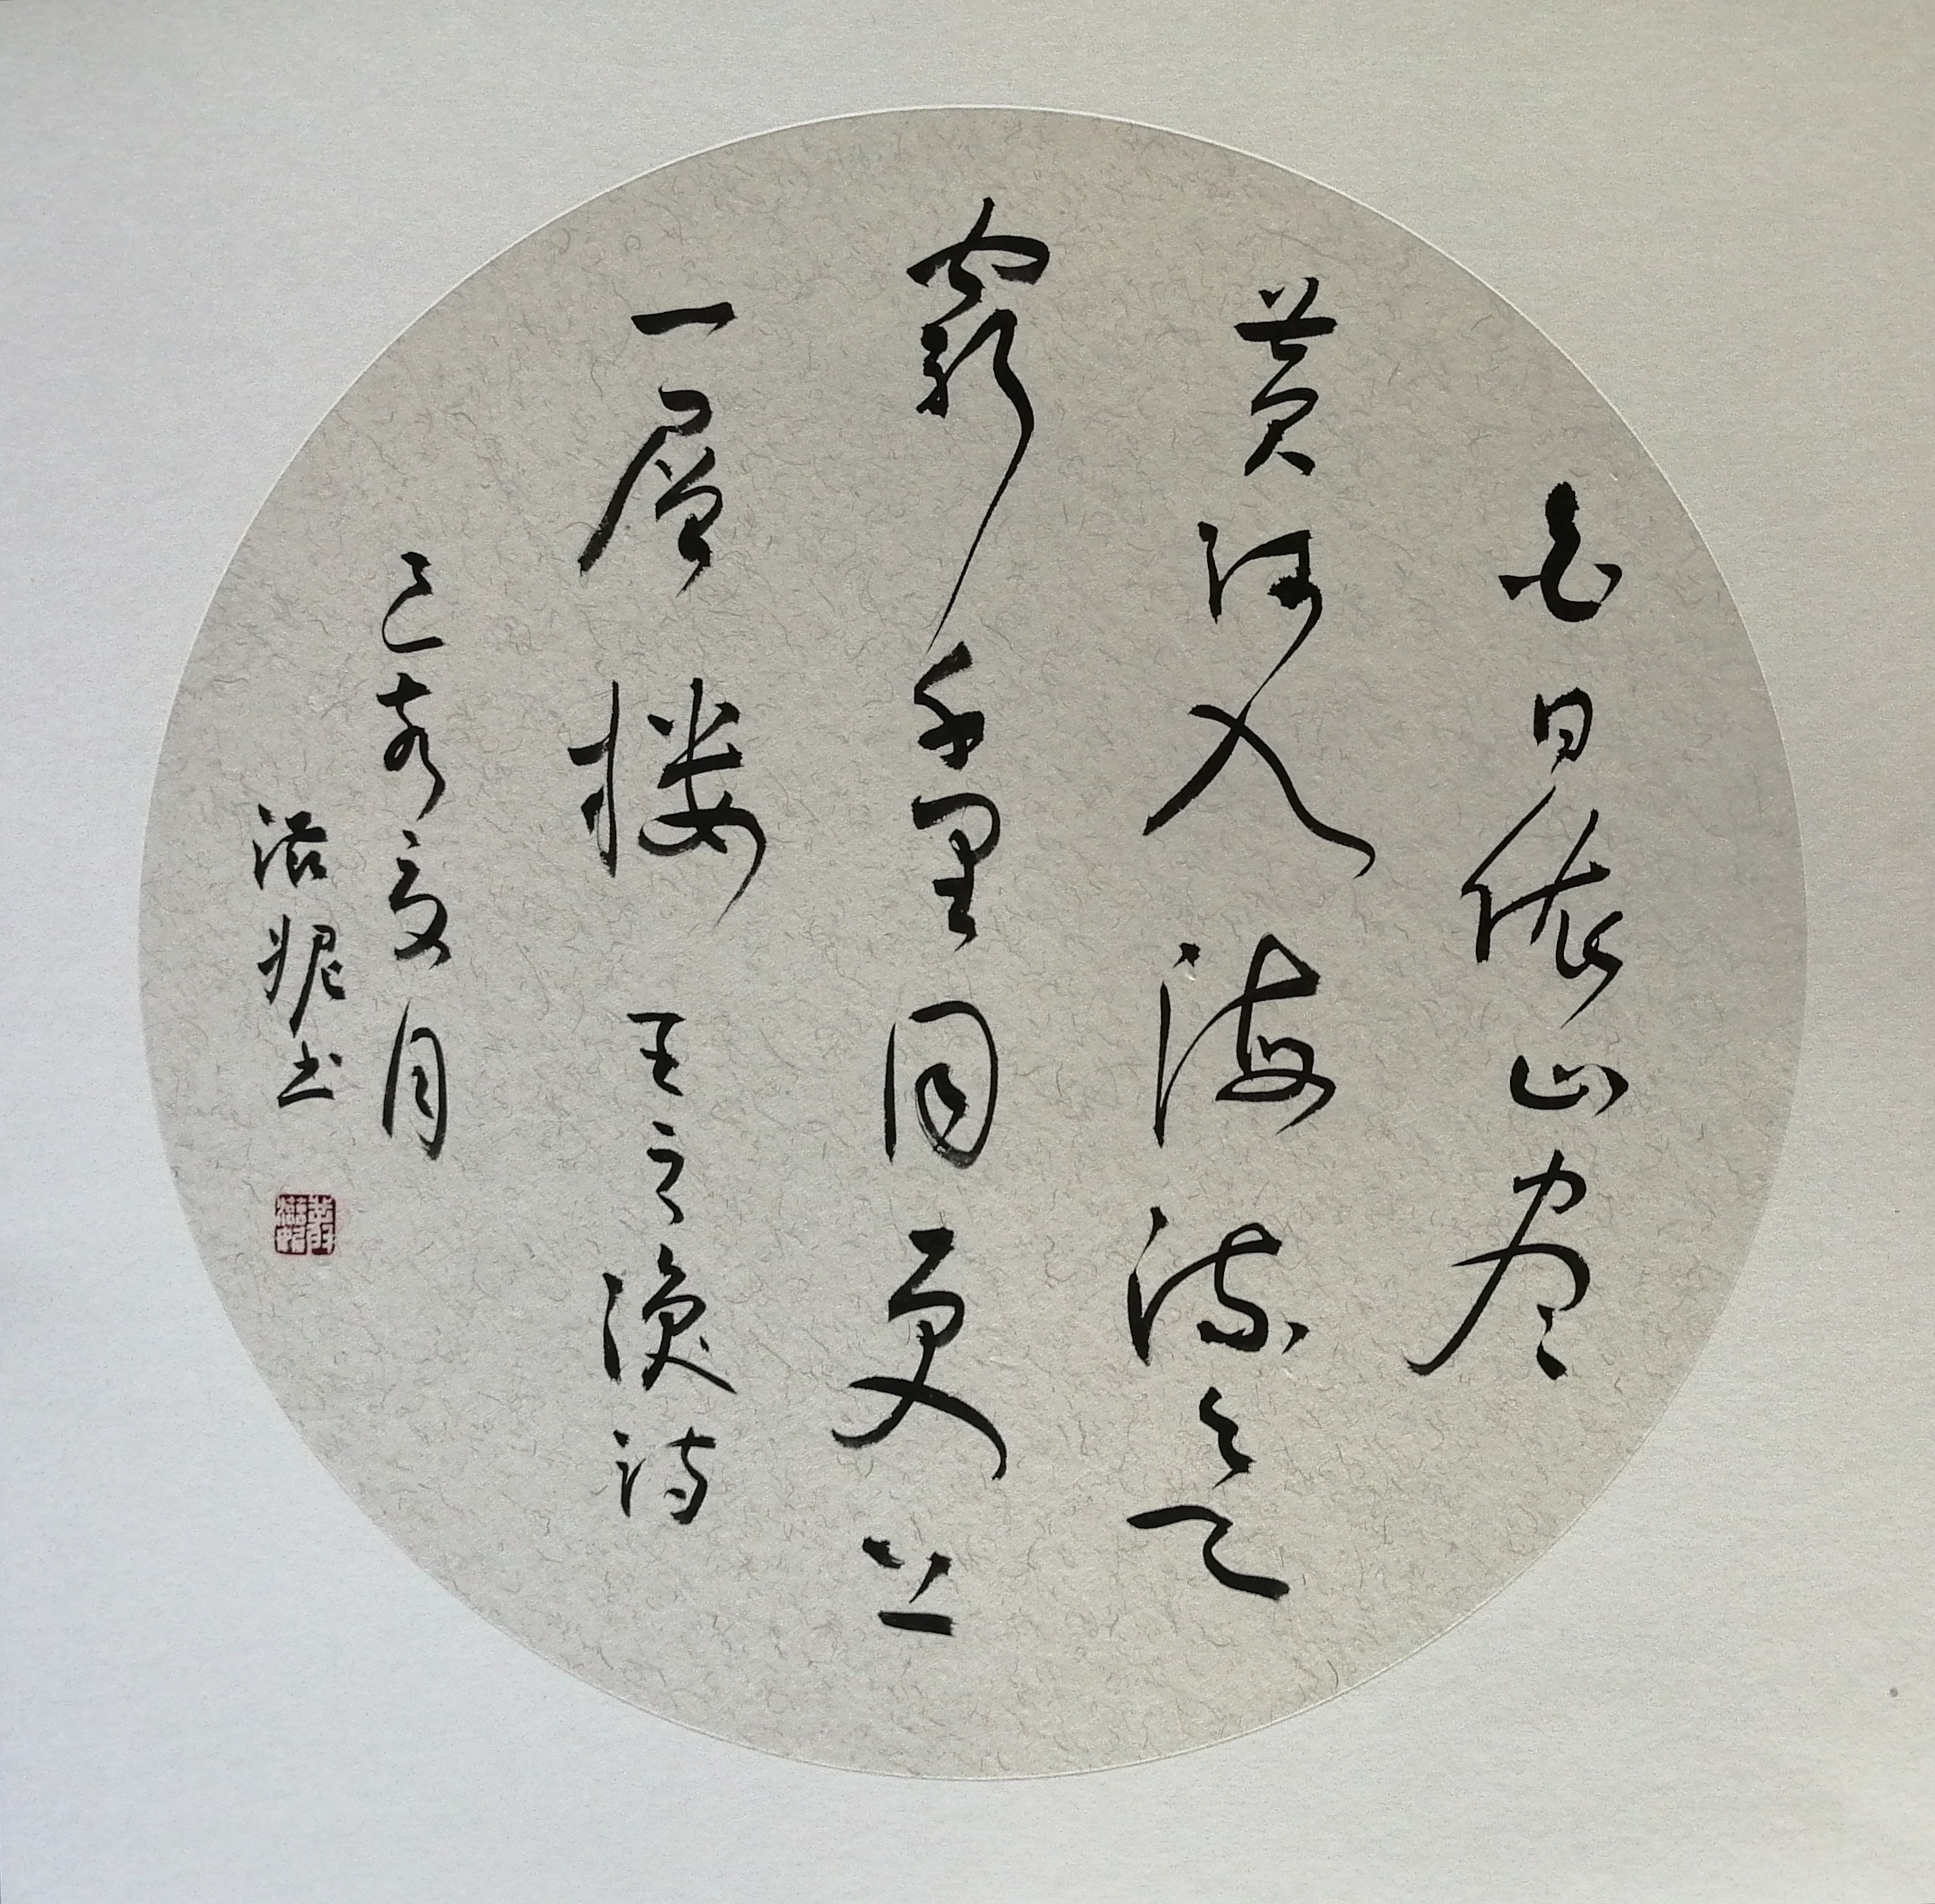 白日依山尽
黄河入海流欲
穷千里目更上
一层楼 王之涣诗
己亥夏月
书